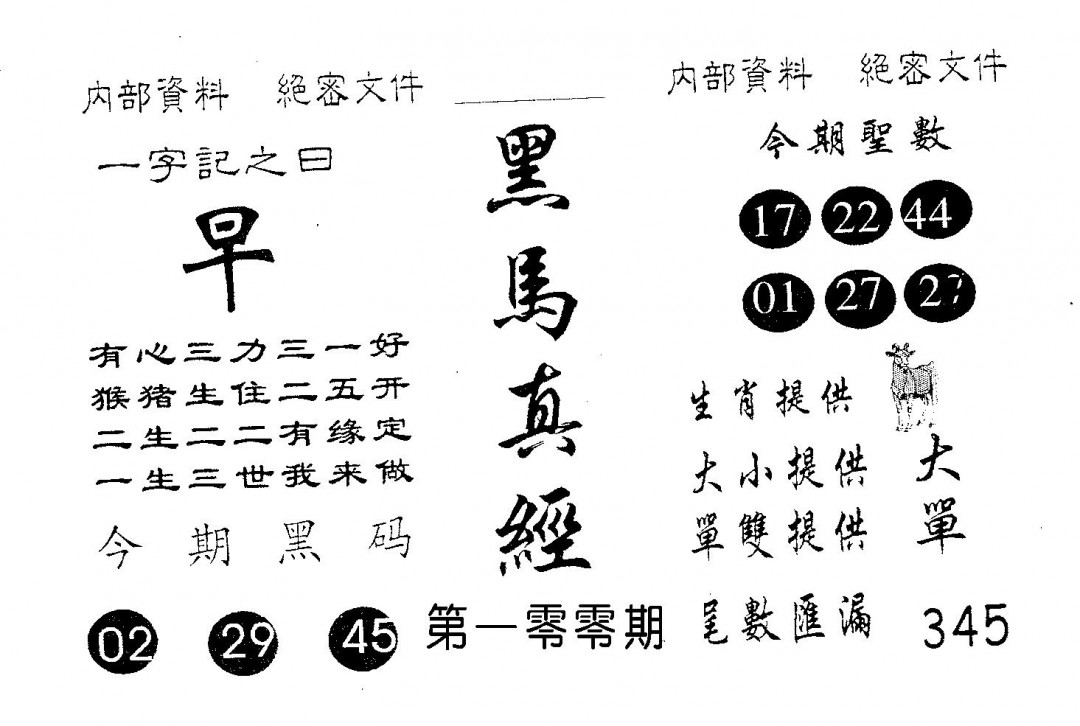 內部資料 絕密文件
一字記之曰
早
有心三力三一好
猴猪生住二五开
二生二二有缘定
一生三世我来做
今期黑码
02 29 45
黑馬真經
第一零零期
內部資料 絕密文件
今期聖數
17 22 44
01 27 27
生肖提供
大小提供 大
單雙提供 單
尾數匯漏 345